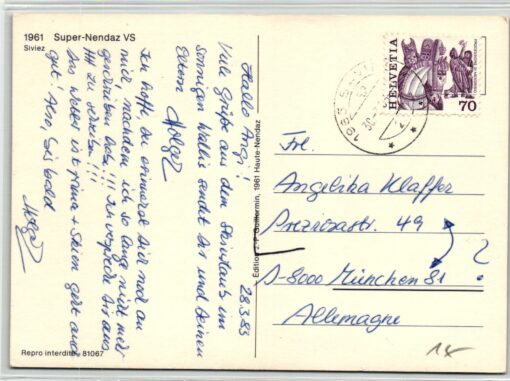 1961 Super-Nendaz VS
Siviez
28.3.83
Hallo Angi!
Viele Grüße aus dem
sonnigen Wallis sendet Dir und Deinen
Eltern Holger
Ich hoffe Du erinnerst Dich noch an
mich, nachdem ich so lange nicht mehr
geschrieben habe!!! Ich verspreche Dir aus
zu !!!
Das Wetter ist prima + Skien geht auch
gut! Also, bis bald
Holger
Edition J.-P. Guillermin, 1961 Haute-Nendaz
Repro interdite 81067
HELVETIA
70
Frl.
Angelika Klaffer
49
?
D-8000 München 81
Allemagne